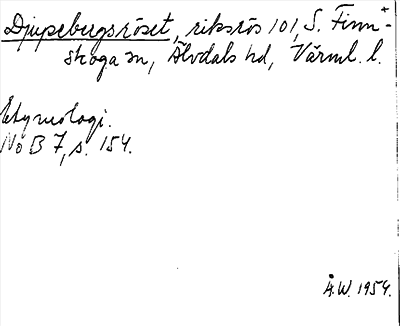 Djupebergsröset, riksrös 101, S. Finn-
skoga sn, Älvdals hd, Värml. l.
Etymologi.
NoB 7, s. 154.
Å.W. 1954.